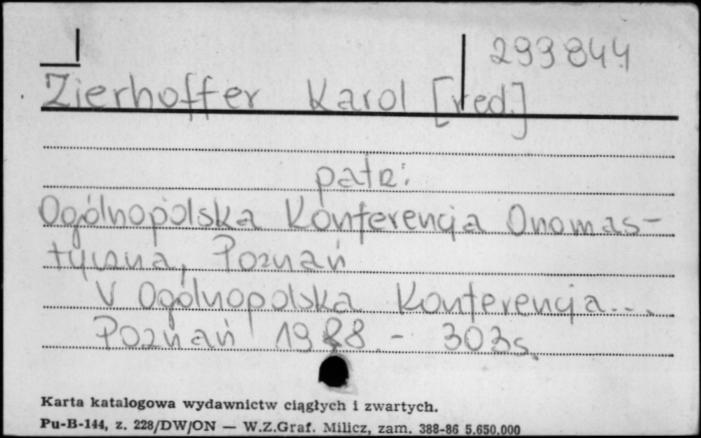 299844
Zierhoffer Karol [red.]
patz:
Ogólnopolska Konferencja Onomas-
tyczna, Poznań
V Ogólnopolska Konferencja...
Poznań 1988 - 303s.
Karta katalogowa wydawnictw ciągłych i zwartych.
Pu-B-144, z. 228/DW/ON — W.Z.Graf. Milicz, zam. 388-86 5.650.000